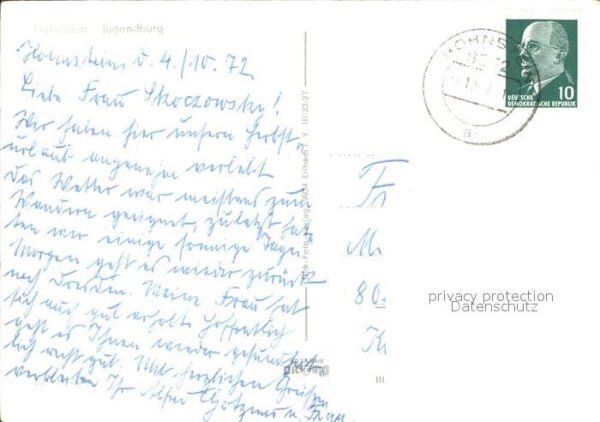 Hohnstein Jugendburg
Hohnstein d. 4./10. 72
Liebe Frau Skoczowsky!
Wir haben hier unsern Herbst-
urlaub angenehm verlebt
Das Wetter war meistens zum
Wandern geeignet, zuletzt hat-
ten wir einige sonnige Tage.
Morgen geht es wieder zurück
nach Dresden. Meine Frau hat
sich auch gut erholt. Hoffentlich
geht es Ihnen wieder gesundheit-
lich recht gut. Mit herzlichen Grüßen
verbleiben Ihr Alfred u. Frau
III/23/27
HOHNST
10
DEUTSCHE
DEMOKRATISCHE REPUBLIK
Fr
M
80
Th
privacy protection
Datenschutz